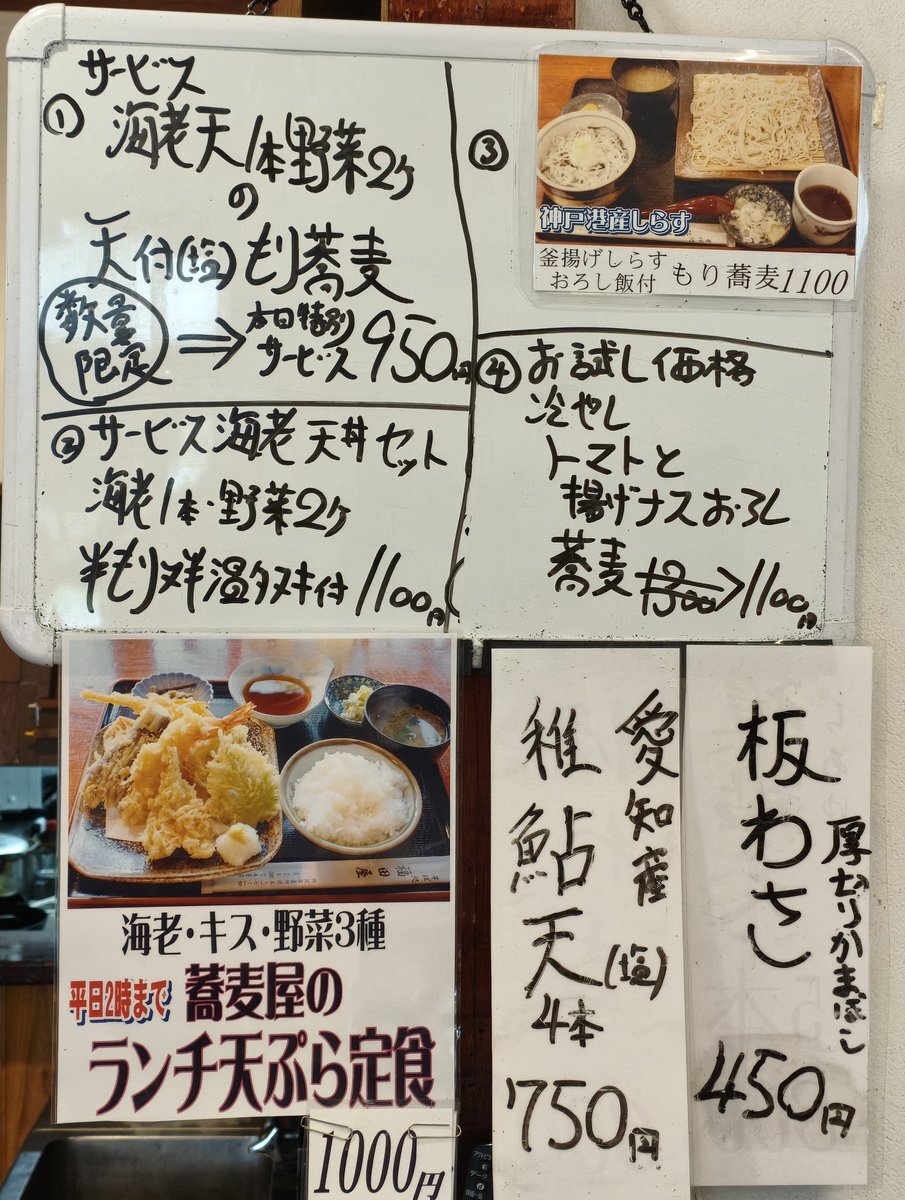 ① サービス
海老天1本野菜2ケ
の
天付(塩)もり蕎麦
数量
限定
⇒ 本日特別
サービス 950円
② サービス海老天丼セット
海老1本・野菜2ケ
半もり又半温タヌキ付 1100円
③
神戸港産しらす
釜揚げしらす
おろし飯付 もり蕎麦1100
④ お試し価格
冷やし
トマトと
揚げナスおろし
蕎麦 1300→1100円
海老・キス・野菜3種
平日2時まで 蕎麦屋の
ランチ天ぷら定食
1000円
愛知産(塩)
稚鮎天
4本
750円
板わさ
厚切りかまぼこ
450円
福田屋
データ